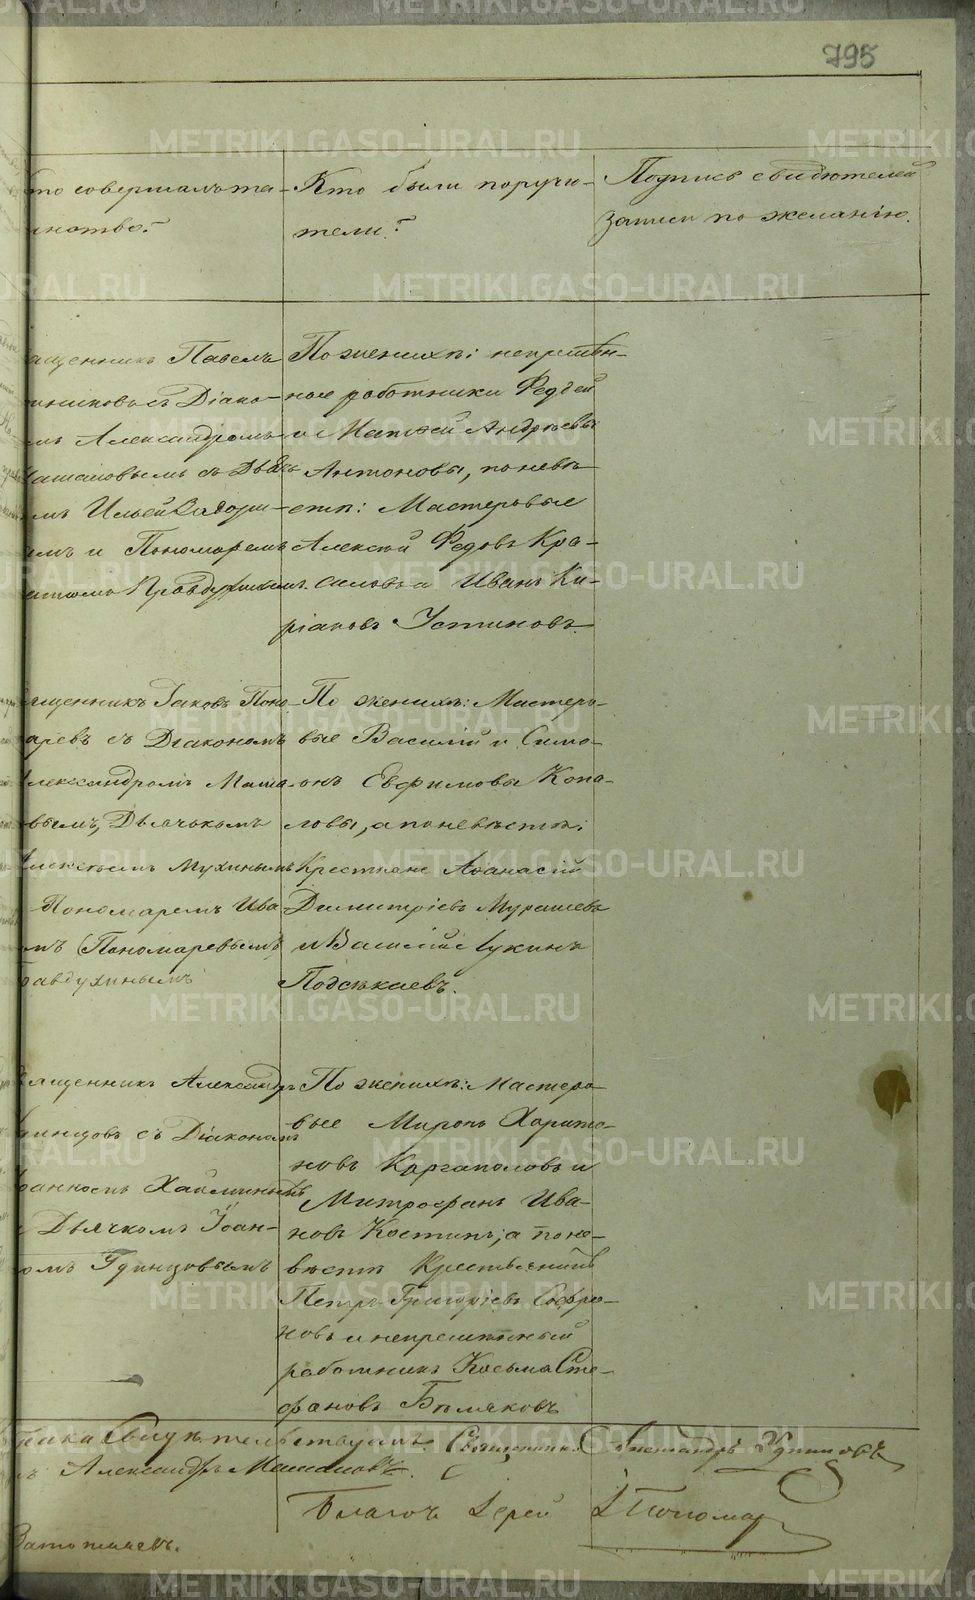 795
то совершалъ та-
инство?
Кто были поручи-
тели?
Подпись свидѣтелей
записи по желанію.
ященникъ Павелъ
никовъ съ Діако-
мъ Александромъ
Машановымъ съ Дьяч-
мъ Ильей
мъ и Пономаремъ
Правдухинымъ
По женихѣ: непремѣн-
ные работники Федѣй
и Матѳей Андреевы
Антоновы, по невѣ-
стѣ: Мастеровые
Алексѣй Федовъ Кра-
силовъ и Иванъ Ки-
ріаковъ Устиновъ.
ященникъ Іаковъ Поно-
маревъ съ Діакономъ
Александромъ Маша-
вымъ, Дьячькомъ
Алексѣемъ Мухинымъ
Пономаремъ Ива-
мъ Пономаревымъ
равдухинымъ
По женихѣ: Мастеро-
вые Василій и Симе-
онъ Евфимовы Копа-
ловы, а по невѣстѣ:
Крестьяне Аѳанасій
Димитріевъ Мурашевъ
и Василій Лукинъ
Подсѣкаевъ.
ященникъ Александръ
Удинцовъ съ Діакономъ
Хаминымъ
и Дьячкомъ Іоан-
омъ Удинцовымъ
По женихѣ: Мастеро-
вые Миронъ Харито-
новъ Каргаполовъ и
Митрофанъ Ива-
новъ Костинъ; а по не-
вѣстѣ Крестьянинъ
Петръ Григоріевъ Софро-
новъ и непремѣнный
работникъ Косьма Сте-
фановъ Бѣляковъ
Свидѣтельствуемъ: Священникъ Александръ Удинцовъ
Александръ Машановъ.
Благоч. Іерей І Пономар
METRIKI.GASO-URAL.RU